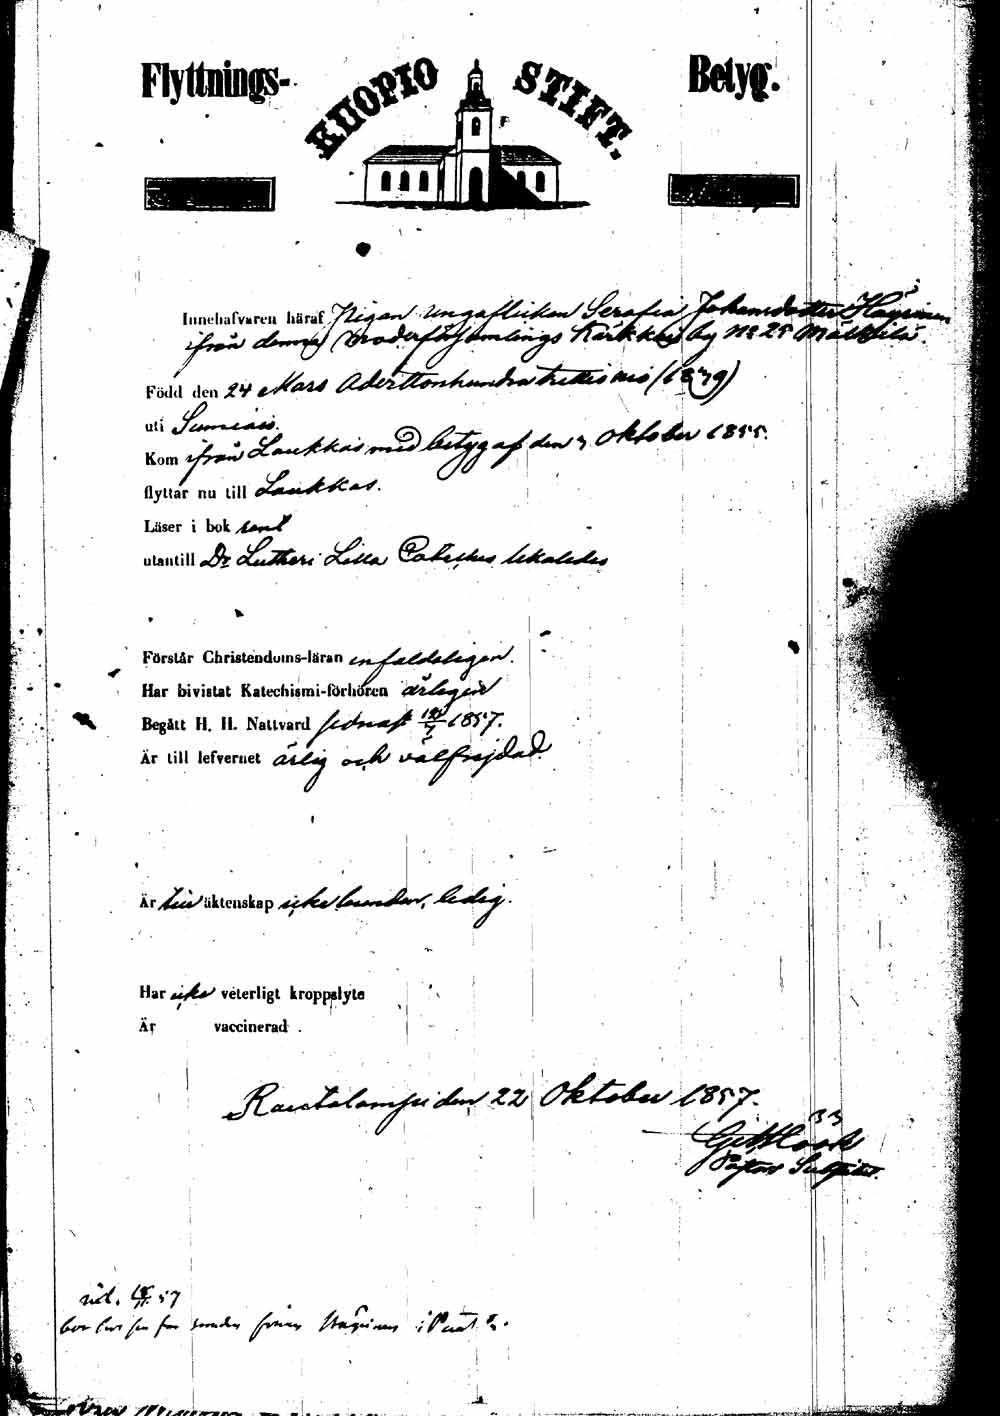 Flyttnings- KUOPIO STIFT. Betyg.
Innehafvaren häraf Pigan ungaflickan Serafia Johansdotter Häyrinen
ifrån denna moderförsamlings Kärkkäis by No 25 Mälkilä.
Född den 24 Mars Adertonhundratrettionio (1839)
uti Sumiais.
Kom ifrån Laukkas med betyg af den 3 Oktober 1855.
flyttar nu till Laukkas.
Läser i bok rent
utantill Dr Lutheri Lilla Cateches likaledes
Förstår Christendoms-läran enfaldeligen.
Har bivistat Katechismi-förhören årligen
Begått H. H. Nattvard sednast 1857.
Är till lefvernet ärlig och välfrejdad.
Är till äktenskap icke bunden, ledig.
Har icke veterligt kroppslyte
Är vaccinerad .
Rautalampi den 22 Oktober 1857.
33
Pastor
57